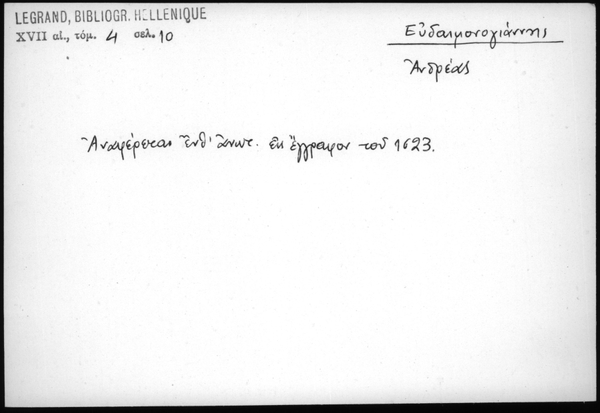 LEGRAND, BIBLIOGR. HELLENIQUE
XVII αἰ., τόμ. 4 σελ. 10
Εὐδαιμονογιάννης
Ἀνδρέας
Ἀναφέρεται ἔνθ' ἄνωτ. εἰς ἔγγραφον τοῦ 1623.